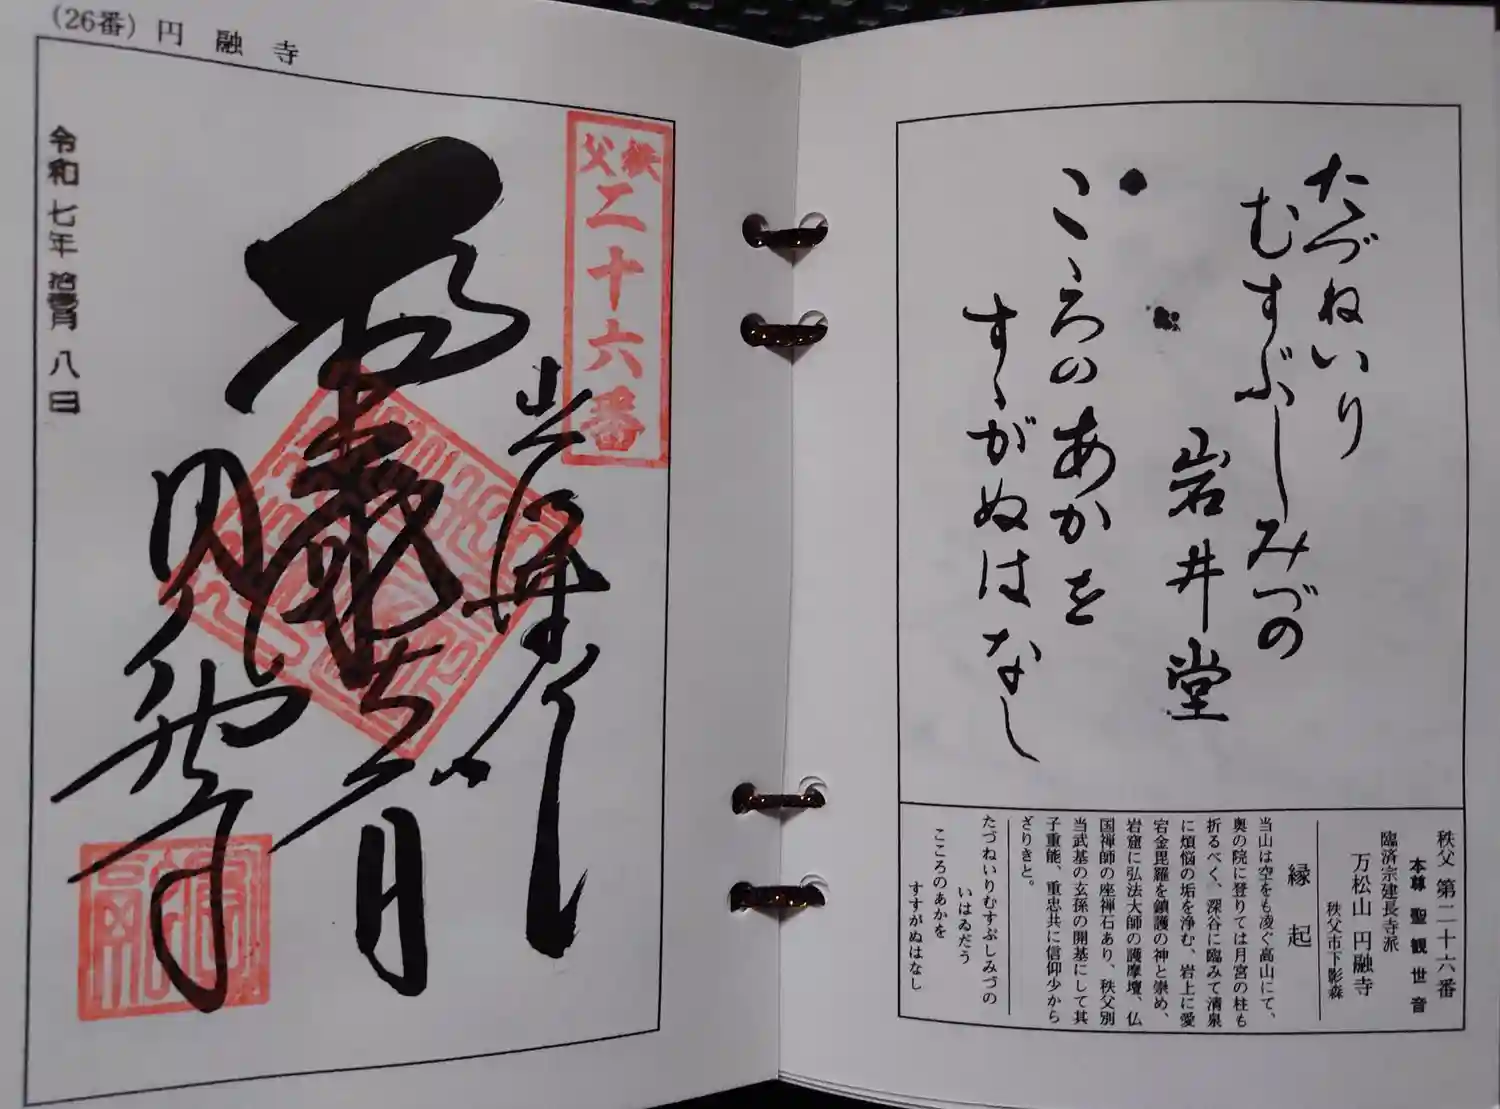 (26番) 円融寺
令和七年拾壱月八日
秩父
二十六番
円融寺
たづねいり
むすぶしみづの
岩井堂
こゝろのあかを
すゝがぬはなし
秩父 第二十六番
本尊 聖観世音
臨済宗建長寺派
万松山 円融寺
秩父市下影森
縁起
当山は空をも凌ぐ高山にて、
奥の院に登りては月宮の桂も
折るべく、深谷に臨みて清泉
に煩悩の垢を浄む、岩上に愛
宕金毘羅を鎮護の神と崇め、
岩窟に弘法大師の護摩壇、仏
国禅師の座禅石あり、秩父別
当武基の玄孫の開基にして其
子重能、重忠共に信仰少から
ざりきと。
たづねいりむすぶしみづの
いはゐだう
こころのあかを
すすがぬはなし